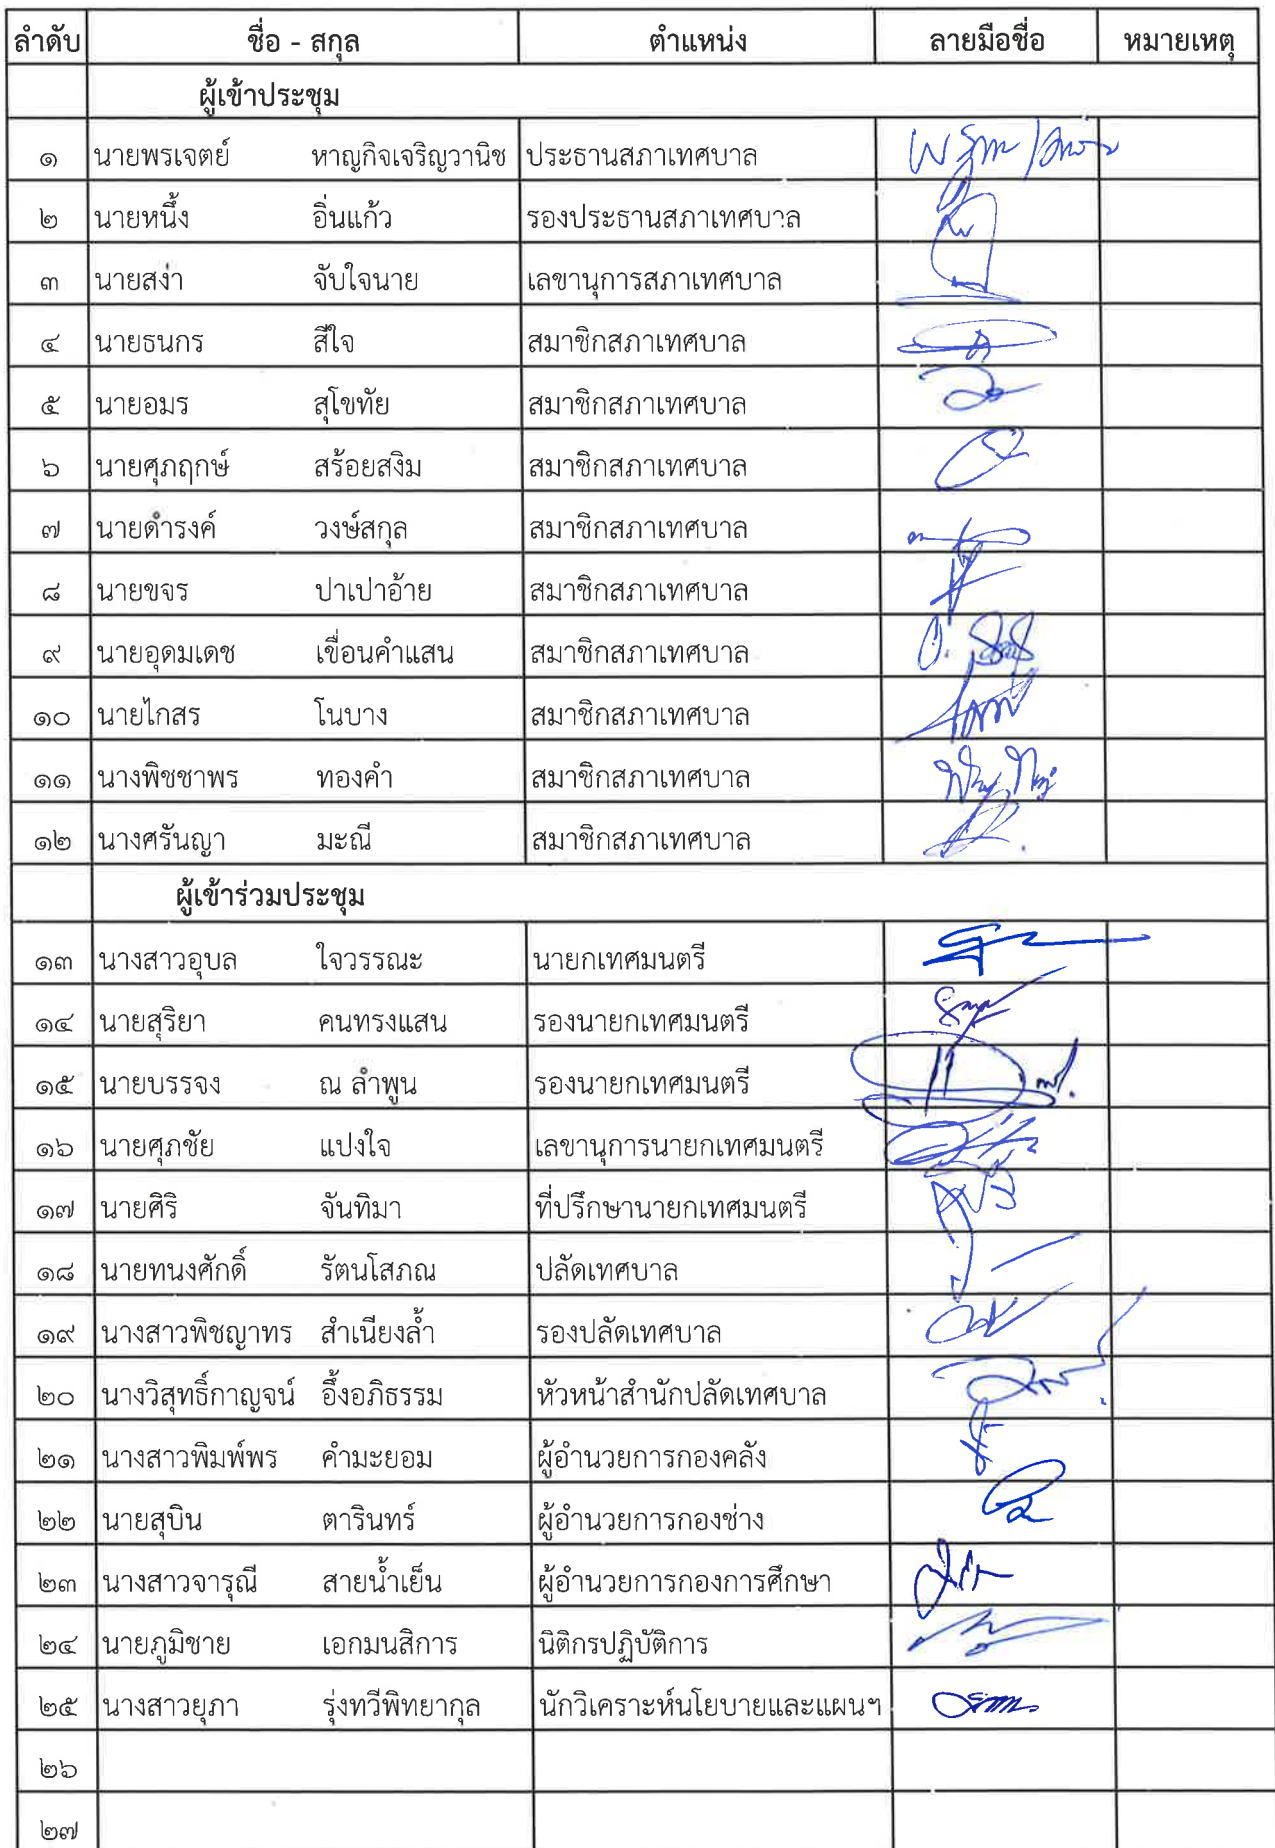 ลำดับ ชื่อ - สกุล ตำแหน่ง ลายมือชื่อ หมายเหตุ
ผู้เข้าประชุม
๑ นายพรเจตย์ หาญกิจเจริญวานิช ประธานสภาเทศบาล
๒ นายหนึ้ง อิ่นแก้ว รองประธานสภาเทศบาล
๓ นายสง่า จับใจนาย เลขานุการสภาเทศบาล
๔ นายธนกร สีใจ สมาชิกสภาเทศบาล
๕ นายอมร สุโขทัย สมาชิกสภาเทศบาล
๖ นายศุภฤกษ์ สร้อยสงิม สมาชิกสภาเทศบาล
๗ นายดำรงค์ วงษ์สกุล สมาชิกสภาเทศบาล
๘ นายขจร ปาเปาอ้าย สมาชิกสภาเทศบาล
๙ นายอุดมเดช เขื่อนคำแสน สมาชิกสภาเทศบาล
๑๐ นายไกสร โนบาง สมาชิกสภาเทศบาล
๑๑ นางพิชชาพร ทองคำ สมาชิกสภาเทศบาล
๑๒ นางศรันญา มะณี สมาชิกสภาเทศบาล
ผู้เข้าร่วมประชุม
๑๓ นางสาวอุบล ใจวรรณะ นายกเทศมนตรี
๑๔ นายสุริยา คนทรงแสน รองนายกเทศมนตรี
๑๕ นายบรรจง ณ ลำพูน รองนายกเทศมนตรี
๑๖ นายศุภชัย แปงใจ เลขานุการนายกเทศมนตรี
๑๗ นายศิริ จันทิมา ที่ปรึกษานายกเทศมนตรี
๑๘ นายทนงศักดิ์ รัตนโสภณ ปลัดเทศบาล
๑๙ นางสาวพิชญาทร สำเนียงล้ำ รองปลัดเทศบาล
๒๐ นางวิสุทธิ์กาญจน์ อึ้งอภิธรรม หัวหน้าสำนักปลัดเทศบาล
๒๑ นางสาวพิมพ์พร คำมะยอม ผู้อำนวยการกองคลัง
๒๒ นายสุบิน ตารินทร์ ผู้อำนวยการกองช่าง
๒๓ นางสาวจารุณี สายน้ำเย็น ผู้อำนวยการกองการศึกษา
๒๔ นายภูมิชาย เอกมนสิการ นิติกรปฏิบัติการ
๒๕ นางสาวยุภา รุ่งทวีพิทยากุล นักวิเคราะห์นโยบายและแผนฯ
๒๖
๒๗